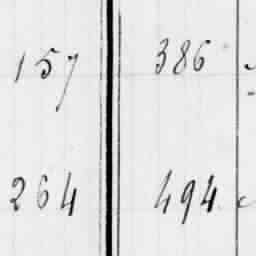 157 386
264 494